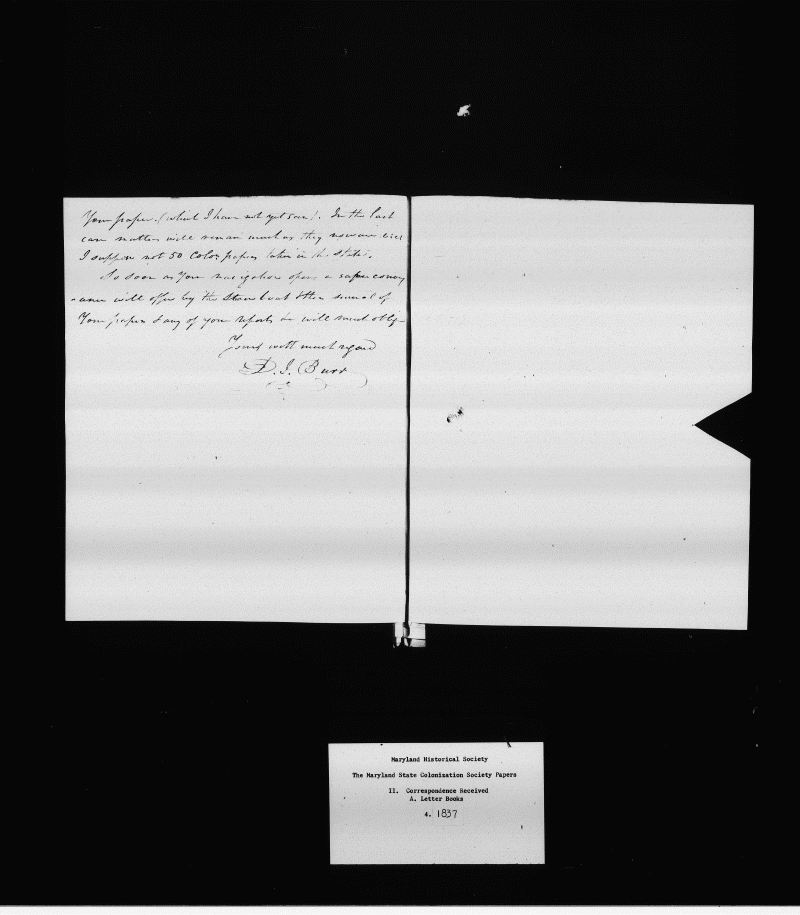 Your paper. (which I have not yet seen). In the last
case matters will remain much as they now are
I suppose not 50 Colo. papers taken in the state.
So soon as Your navigation opens a safe convey
ance will offer by the Steam boat & then several of
Your papers & any of your reports &c will much oblig
Yours with much regard
D. I. Burr
Maryland Historical Society
The Maryland State Colonization Society Papers
II. Correspondence Received
A. Letter Books
4. 1837